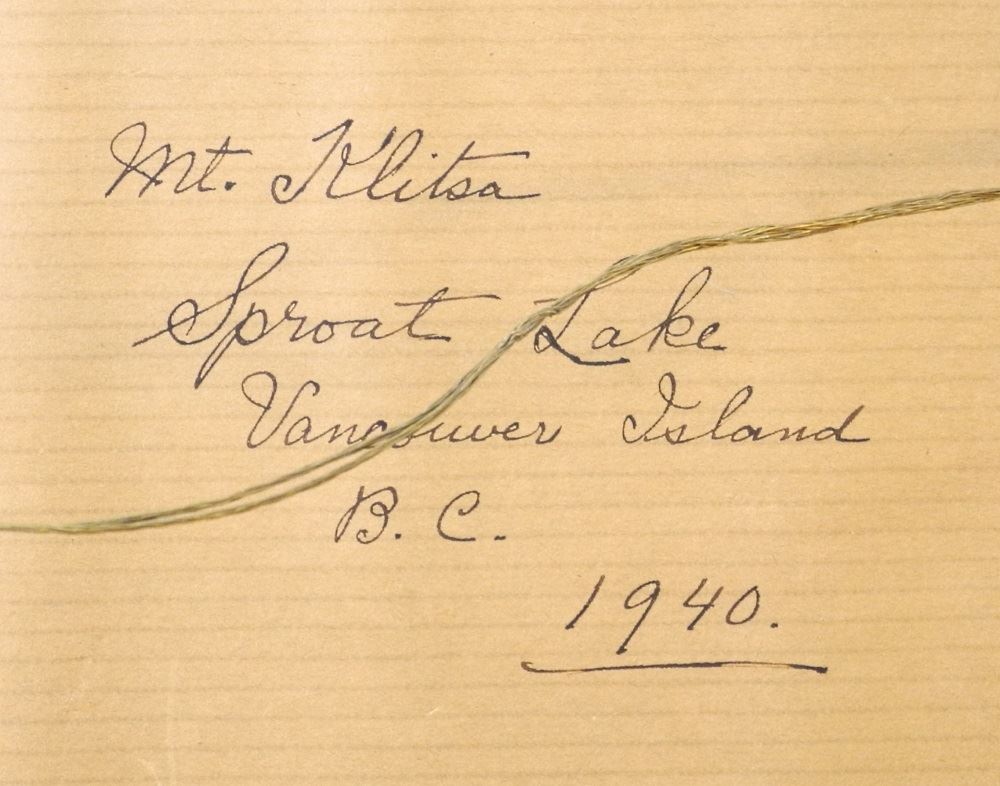 Mt. Klitsa
Sproat Lake
Vancouver Island
B. C.
1940.